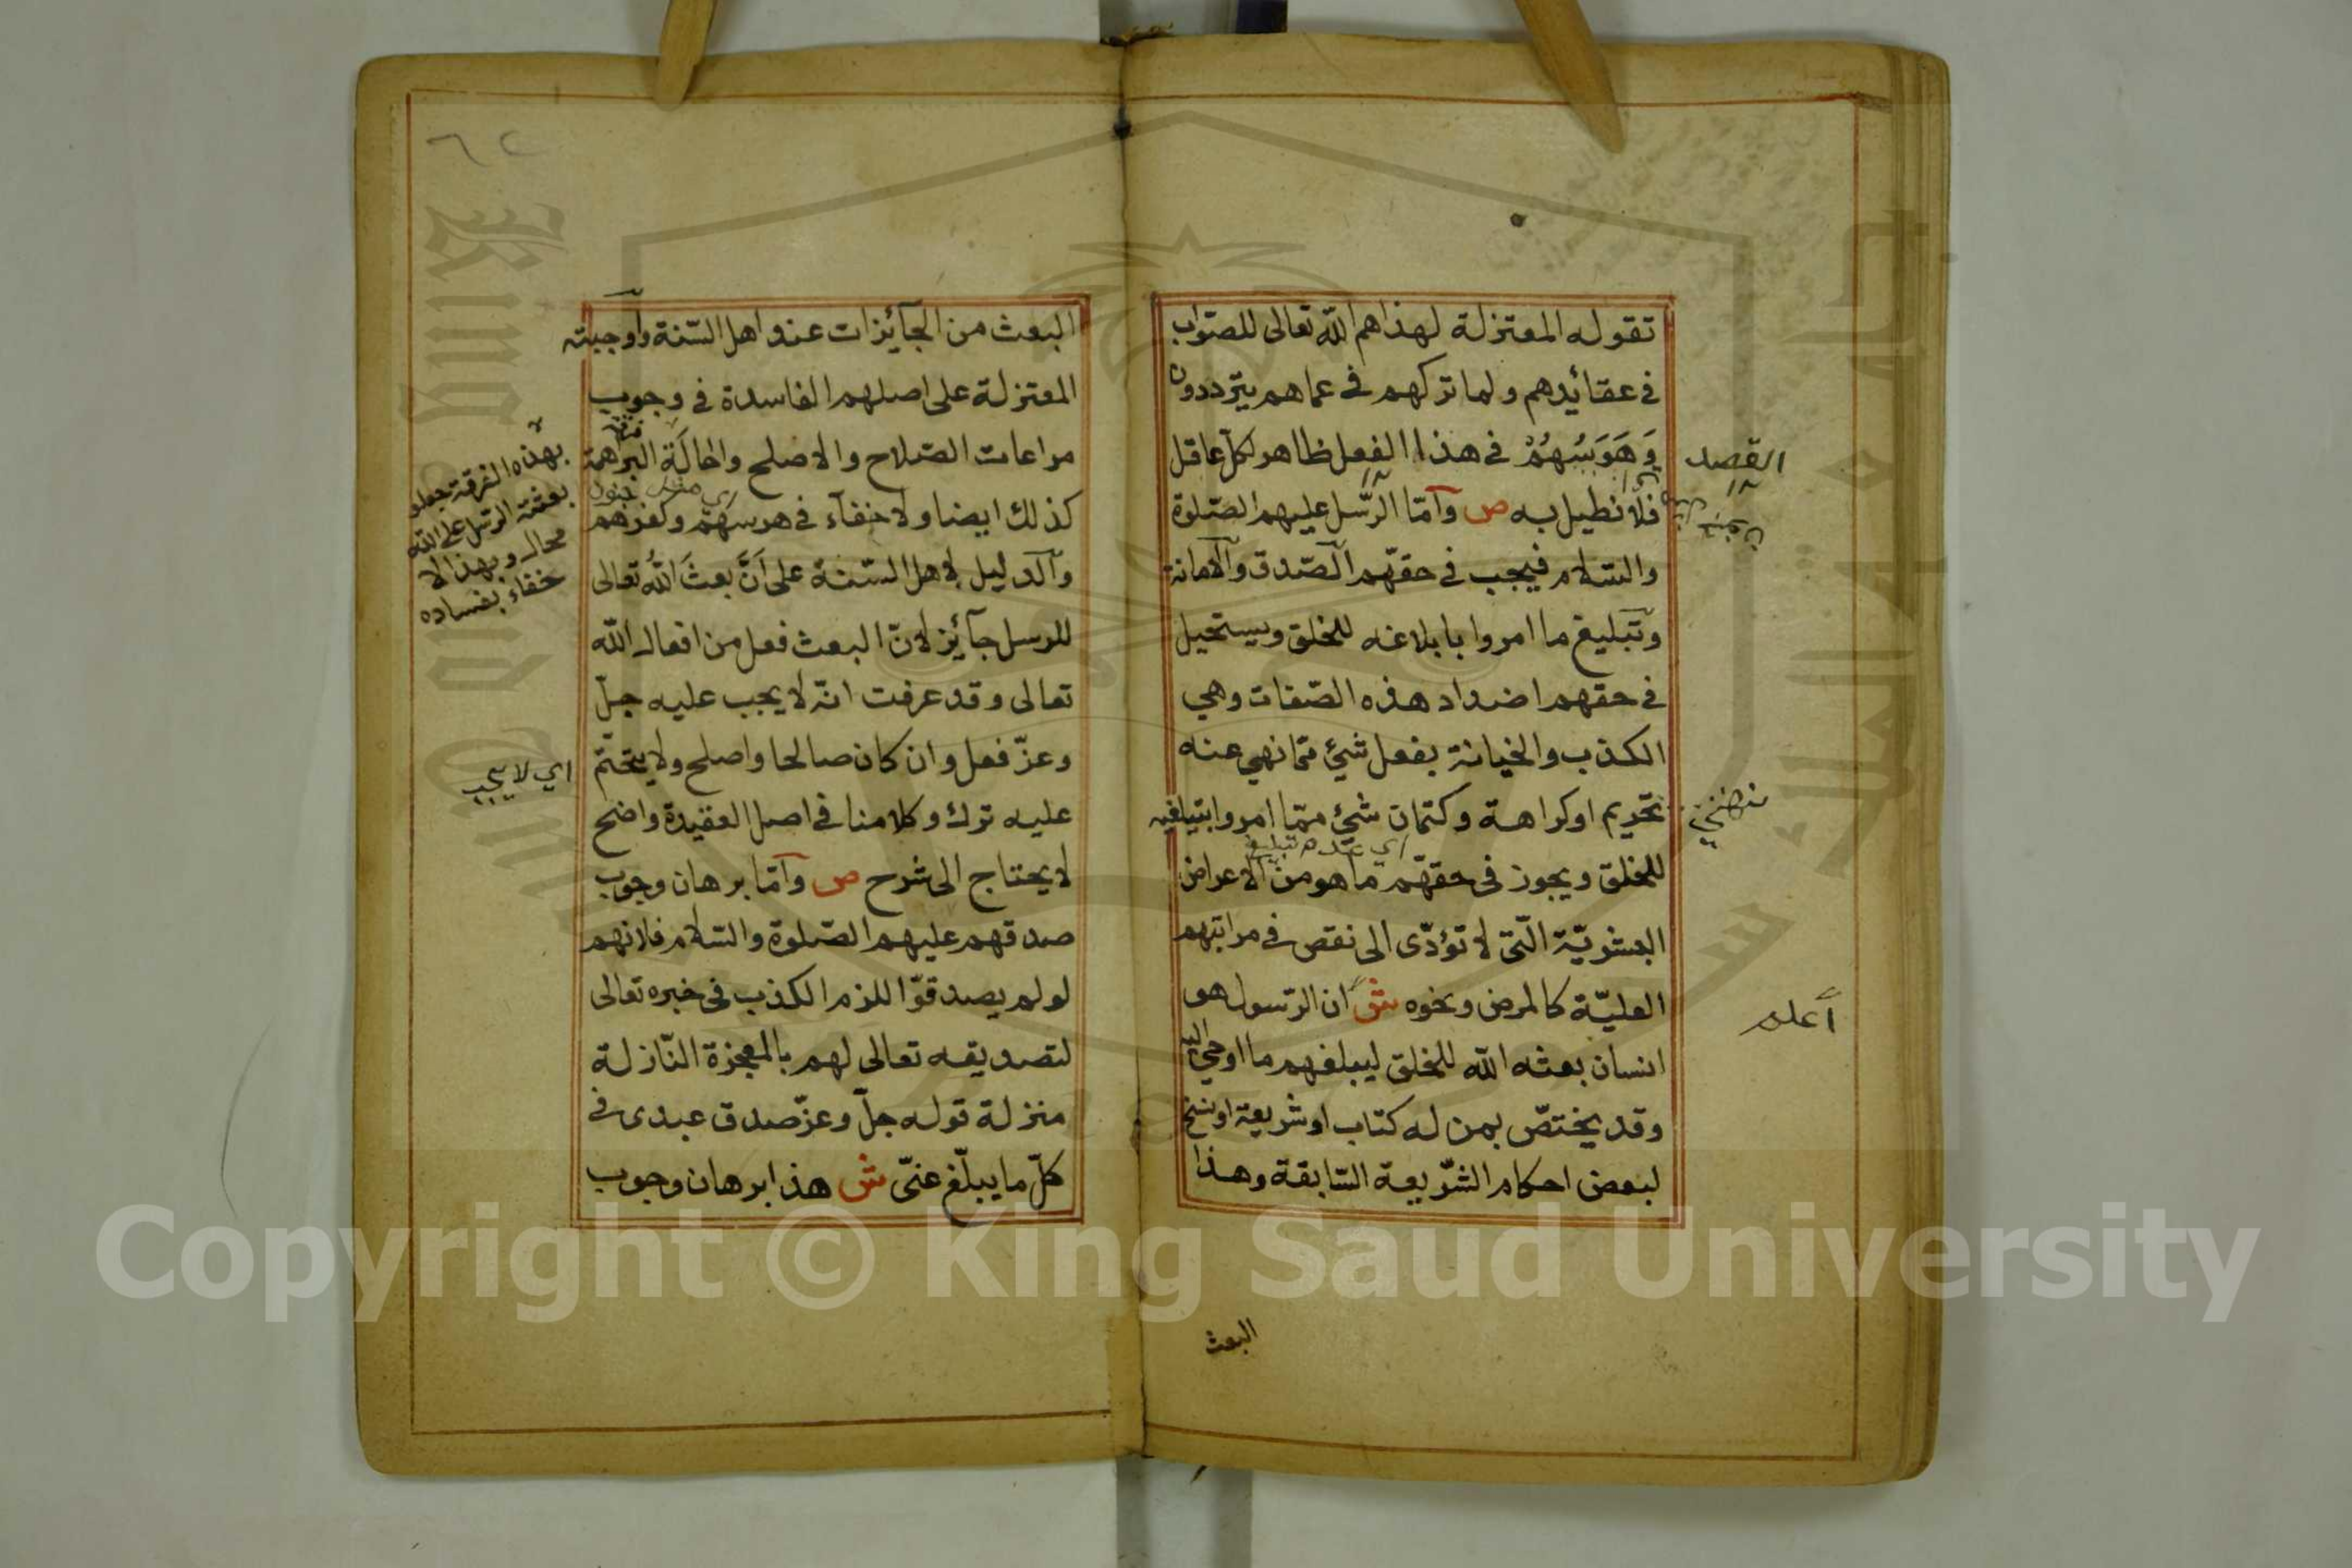 تقوله المعتزلة لهذاهم الله تعالى للصواب
في عقائدهم ولما تركهم في عماهم يترددون
وَهَوَسُهُمْ في هذا الفعل ظاهر لكل عاقل
فلا نطيل به ص وامّا الرّسل عليهم الصّلوة
والسّلام فيجب في حقهّم الصّدق والامانة
وتبليغ ما امروا بابلاغه للخلق ويستحيل
في حقهم اضداد هذه الصّفات وهي
الكذب والخيانة بفعل شيئ ممّا نهي عنه
تحريم او كراهة وكتمان شيئ ممّا امروا بتبليغه
اي عدم تبليغ
للخلق ويجوز في حقهّم ما هو من الاعراض
البشريّة الّتي لا تؤدّى الى نقص في مراتبهم
العليّة كالمرض ونحوه ش ان الرّسول هو
انسان بعثه الله للخلق ليبلغهم ما اوحي اليه
وقد يختصّ بمن له كتاب او شريعة او نسخ
لبعض احكام الشّريعة السّابقة وهذا
القصد
أعلم
البعث
٦٢
البعث من الجآئزات عند اهل السّنة واوجبته
المعتزلة على اصلهم الفاسدة في وجوب
مراعات الصّلاح والاصلح واحالَة البراهمة
كذلك ايضا ولا خفآء في هوسهم وكفرهم
والدليل لاهل السّنة على اَنَّ بعثَ اللهُ تعالى
للرسل جآئز لانّ البعث فعل من افعال الله
تعالى وقد عرفت انّه لا يجب عليه جلّ
وعزّ فعل وان كان صالحا واصلح ولا يتحتّم
عليه ترك وكلامنا في اصل العقيدة واضح
لا يحتاج الى شرح ص وامّا برهان وجوب
صدقهم عليهم الصّلوة والسّلام فلانهم
لو لم يصدقوّا للزم الكذب في خبره تعالى
لتصديقه تعالى لهم بالمعجزة النّازلة
منزلة قوله جلّ وعزّ صدق عبدى في
كلّ ما يبلّغ عنّى ش هذا برهان وجوب
بهذه الفرقة جعلوا
بعثة الرسل على الله
محال وبهذا لا
خفاء بفساده
اي لا يجب
Copyright © King Saud University